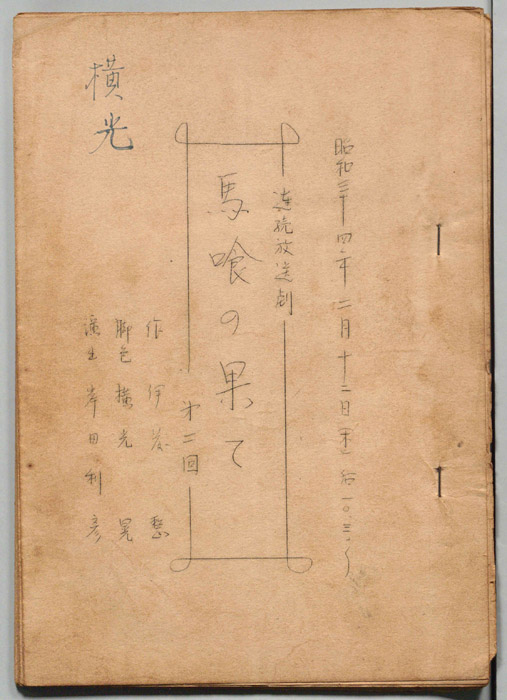 昭和三十四年二月十二日(木)后一〇.三〇〜
連続放送劇
馬喰の果て
第二回
作 伊藤 整
脚色 横光 晃
演出 岸田利彦
横光